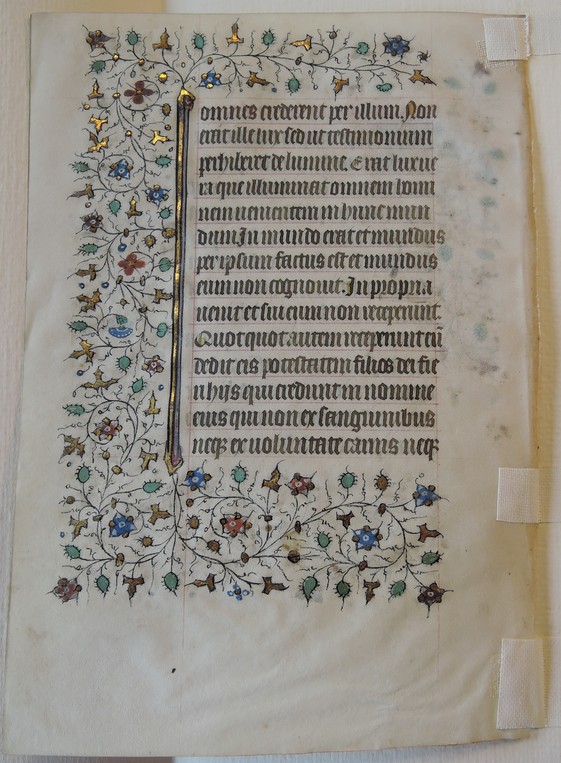 omnes crederent per illum. Non
erat ille lux sed ut testimonium
perhiberet de lumine. Erat lux ue
ra que illuminat omnem homi
nem uenientem in hunc mun
dum. In mundo erat et mundus
per ipsum factus est et mundus
eum non cognouit. In propria
uenit et sui eum non receperunt.
Quotquot autem receperunt eū
dedit eis potestatem filios dei fie
ri hijs qui credunt in nomine
eius qui non ex sanguinibus
neqꝫ ex uoluntate carnis neqꝫ